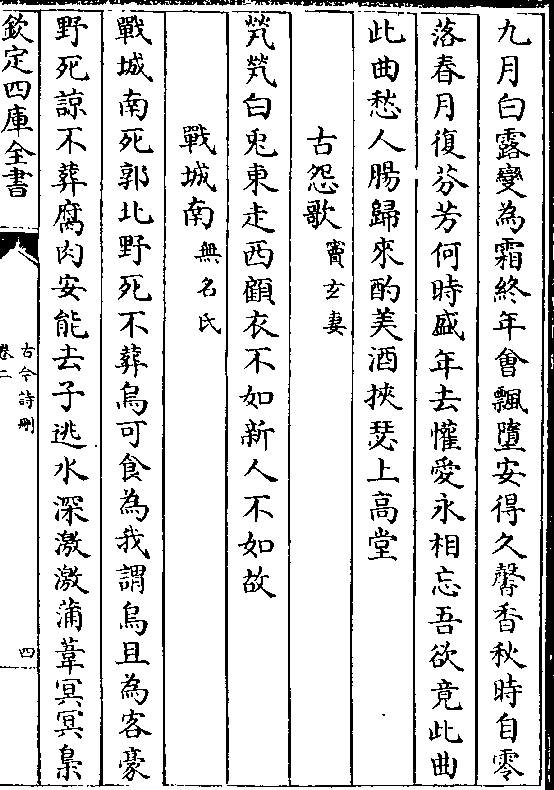 九月白露變為霜終年會飄墮安得久馨香秋時自零
落春月復芬芳何時盛年去懽愛永相忘吾欲竟此曲
此曲愁人腸歸來酌美酒挾瑟上高堂
古怨歌 竇玄妻
煢煢白兎東走西顧衣不如新人不如故
戰城南 無名氏
戰城南死郭北野死不葬烏可食為我謂烏且為客豪
野死諒不葬腐肉安能去子逃水深激激蒲葦冥冥梟
欽定四庫全書
古今詩刪
卷二
四